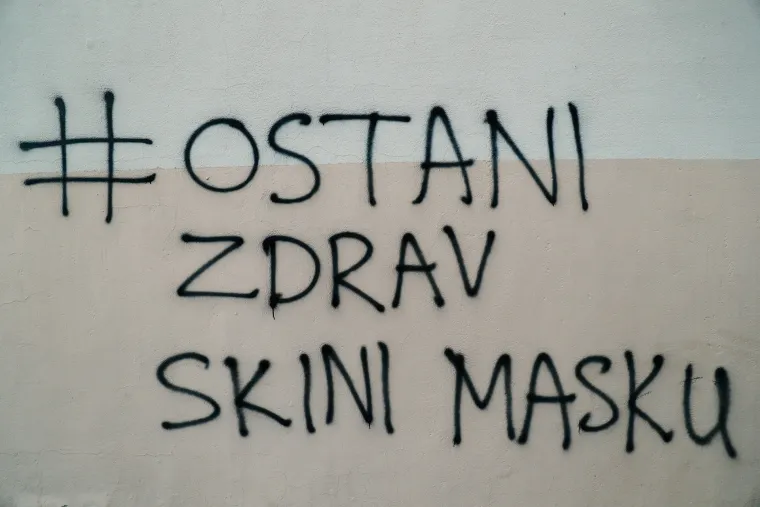 #OSTANI
ZDRAV
SKINI MASKU